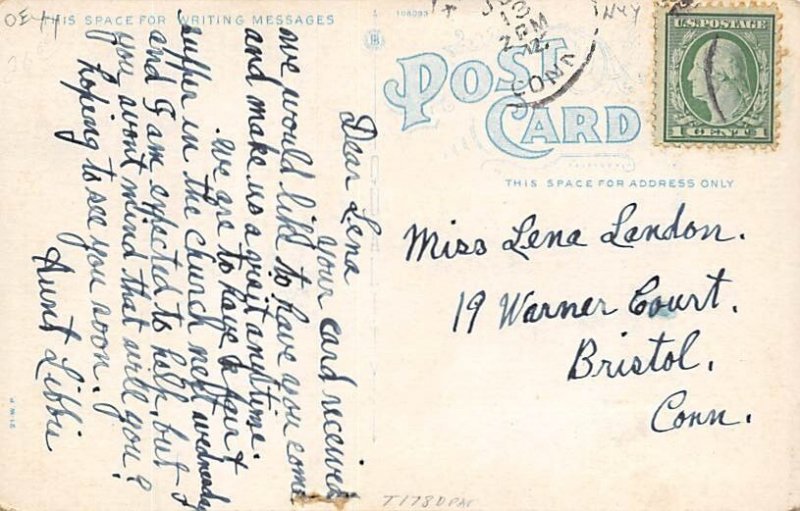 OE-44
THIS SPACE FOR WRITING MESSAGES
108093
POST
CARD
THIS SPACE FOR ADDRESS ONLY
U.S. POSTAGE
1 CENT 1
2 PM
12.
CONN
Dear Lena
your card received
we would like to have you come
and make us a visit anytime.
we are to have a fair &
supper in the church next wednesday
and I am expected to help, but
you wont mind that will you?
hoping to see you soon.
Aunt Libbie
Miss Lena Landon.
19 Warner Court.
Bristol.
Conn.